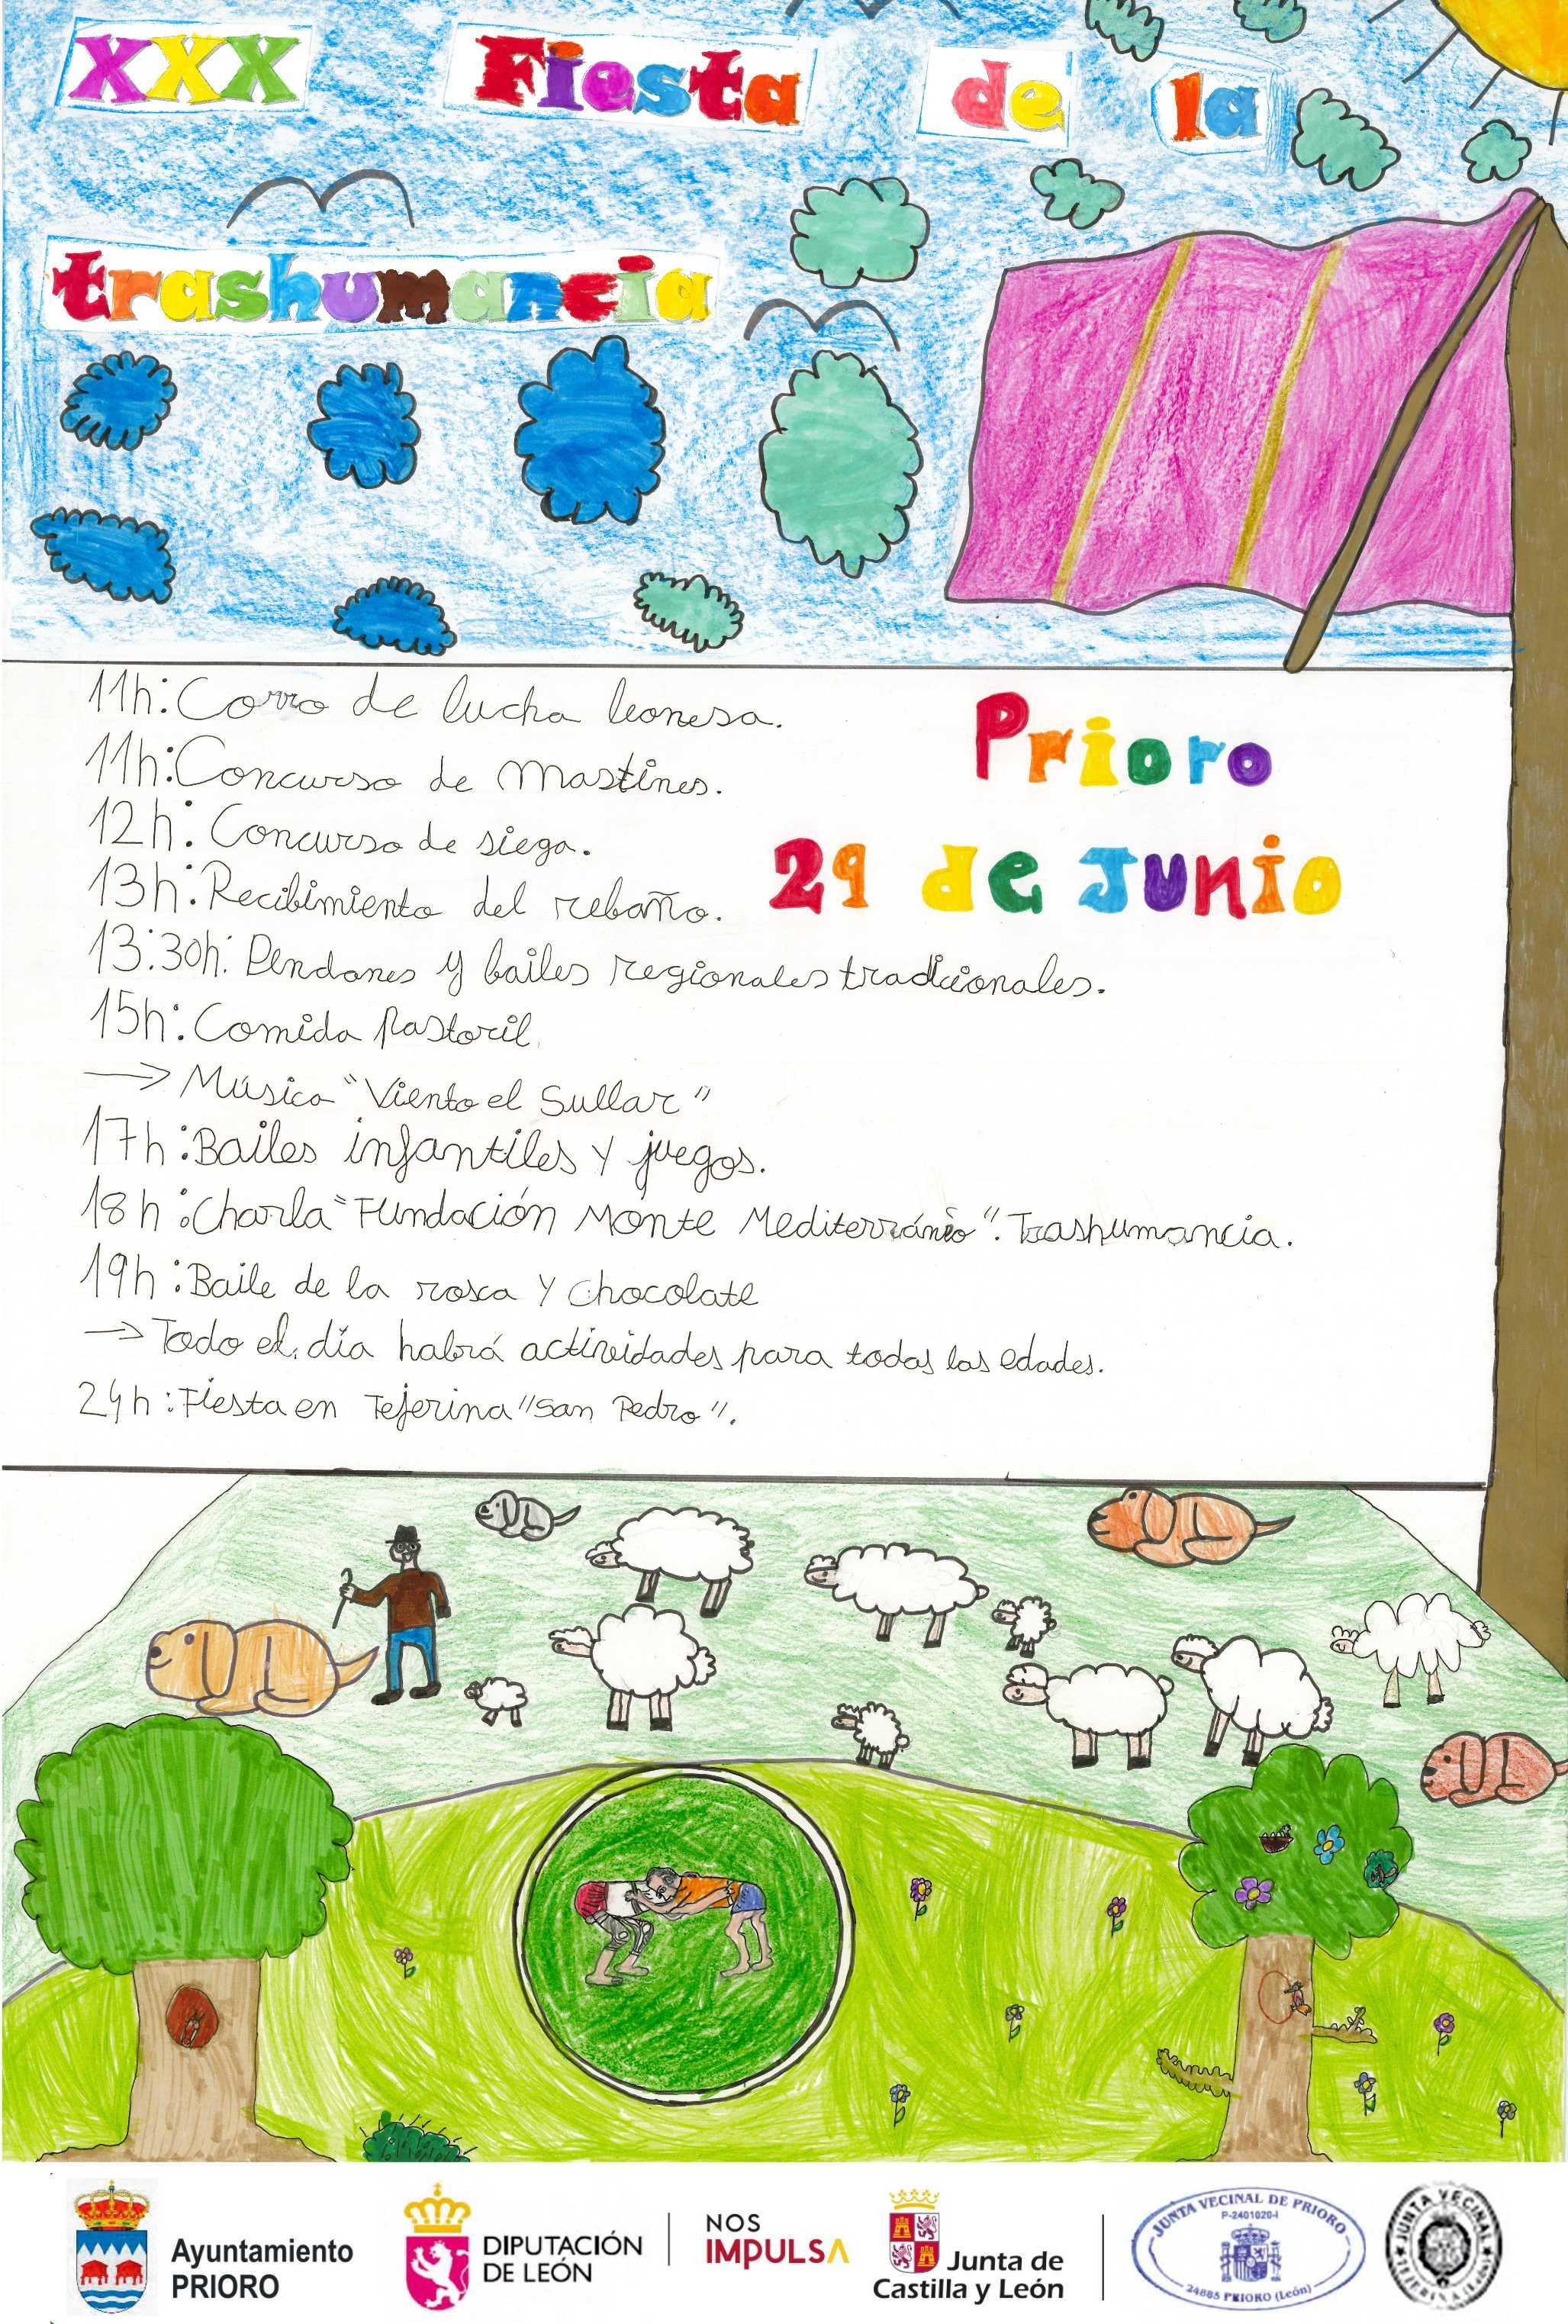 XXX Fiesta de la
trashumancia
11h: Corro de lucha leonesa.
Prioro
11h: Concurso de Mastines.
12h: Concurso de siega.
29 de Junio
13h: Recibimiento del rebaño.
13:30h: Pendones y bailes regionales tradicionales.
15h: Comida Pastoril
→ Música "Viento el Sullar"
17h: Bailes infantiles y juegos.
18h: Charla "Fundación Monte Mediterránio". Trashumancia.
19h: Baile de la rosca y chocolate
→ Todo el día habrá actividades para todas las edades.
24h: Fiesta en Tejerina "San Pedro".
Ayuntamiento
PRIORO
DIPUTACIÓN
DE LEÓN
NOS
IMPULSA
Junta de
Castilla y León
JUNTA VECINAL DE PRIORO
P-2401020-I
24885 PRIORO (León)
JUNTA VECINAL
TEJERINA (León)